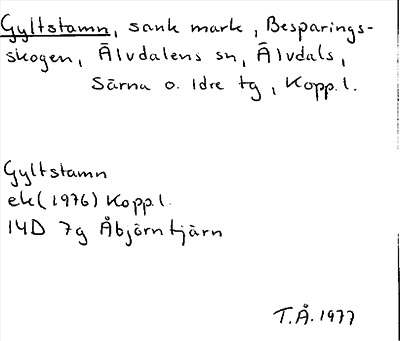 Gyltstamn, sank mark, Besparings-
skogen, Älvdalens sn, Älvdals,
Särna o. Idre tg, Kopp.l.
Gyltstamn
ek(1976) Kopp.l.
14D 7g Åbjörntjärn
T.Å. 1977